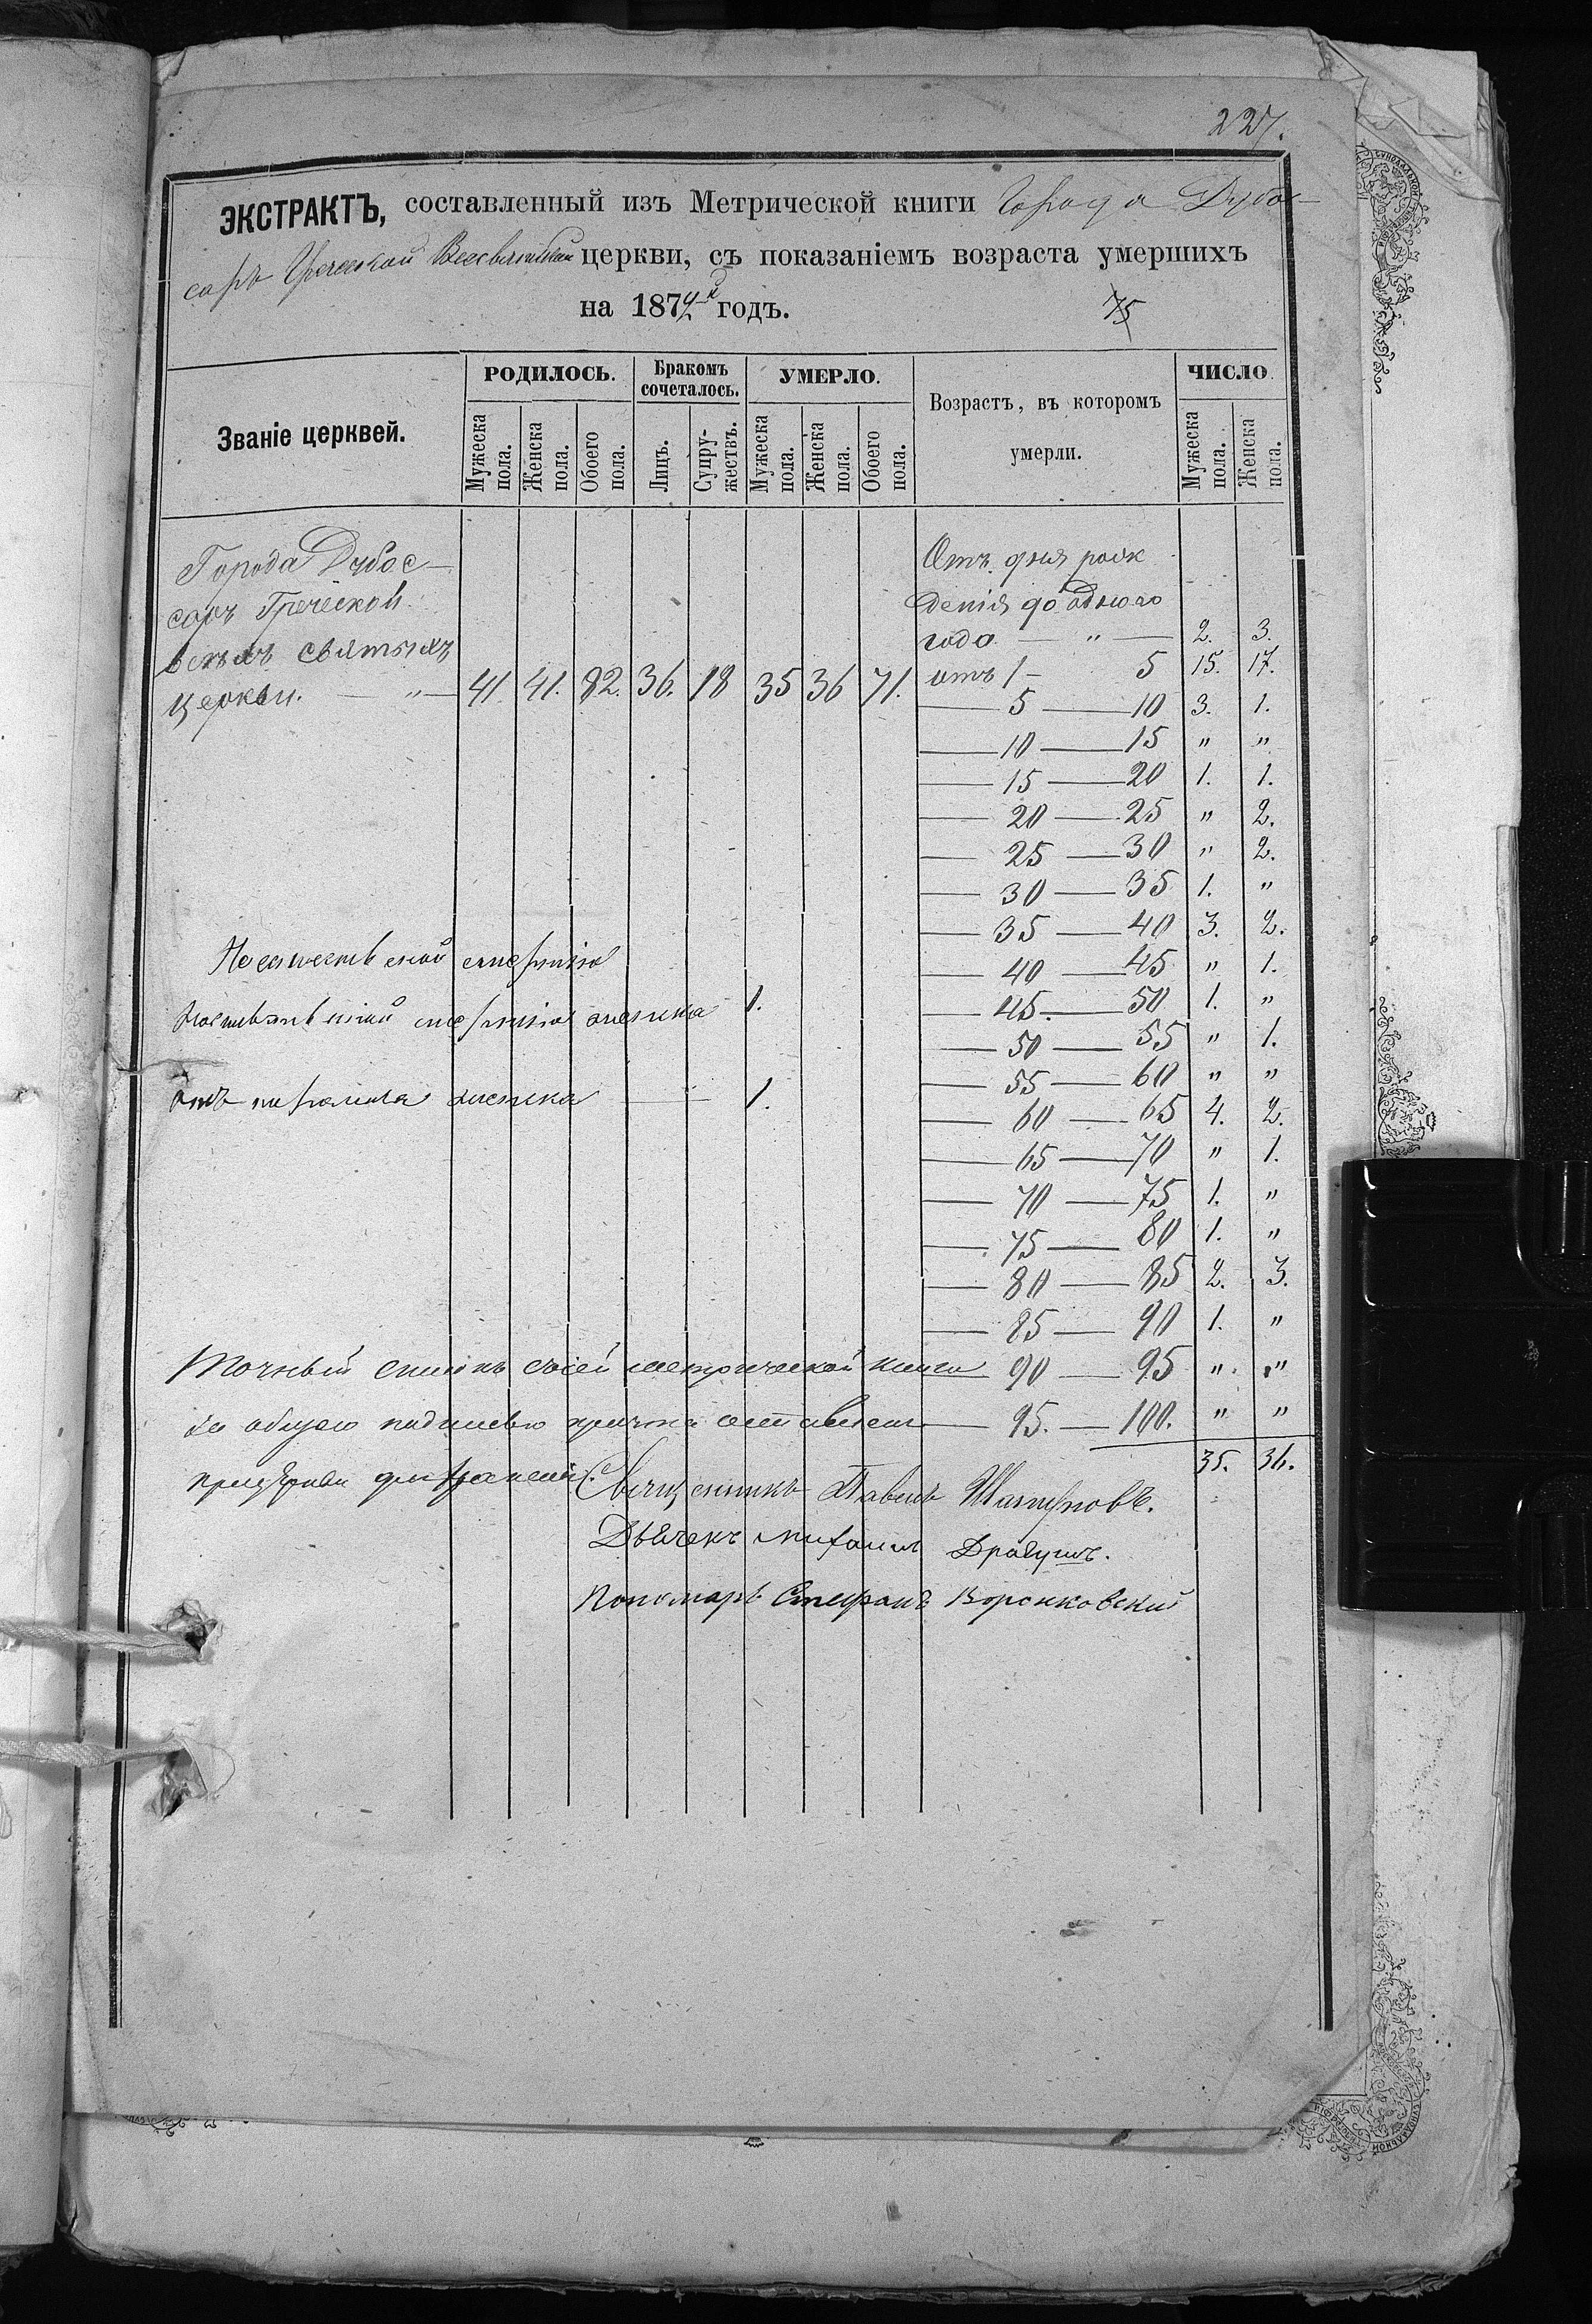 227.
ЭКСТРАКТЪ, составленный изъ Метрической книги Города Дубос-
саръ Греческой Всесвятской церкви, съ показаніемъ возраста умершихъ
на 1874й годъ.
75
Званіе церквей.
РОДИЛОСЬ.
Мужеска пола.
Женска пола.
Обоего пола.
Бракомъ сочеталось.
Лицъ.
Супружествъ.
УМЕРЛО.
Мужеска пола.
Женска пола.
Обоего пола.
Возрастъ, въ которомъ
умерли.
ЧИСЛО
Мужеска пола.
Женска пола.
Города Дубос-
саръ Греческой
всѣхъ святыхъ
церкви. — " — 41. 41. 82. 36. 18 35 36 71.
Отъ дня рож
денія до одного
года — " — 2. 3.
отъ 1 — 5 15. 17.
— 5 — 10 3. 1.
— 10 — 15 " "
— 15 — 20 1. 1.
— 20 — 25 " 2.
— 25 — 30 " 2.
— 30 — 35 1. "
— 35 — 40 3. 2.
— 40 — 45 " 1.
— 45. — 50 1. "
— 50 — 55 " 1.
— 55 — 60 " "
— 60 — 65 4. 2.
— 65 — 70 " 1.
— 70 — 75 1. "
— 75 — 80 1. "
— 80 — 85 2. 3.
— 85 — 90 1. "
— 90 — 95 " "
— 95. — 100. " "
35. 36.
смертію
1.
отъ — " — 1.
Точный списокъ сей метрической книги
за общею подписью причта оставленъ
при церкви
Священникъ Павелъ
Дьячекъ Михаилъ Драгушъ.
Пономарь Стефанъ Воронковскій